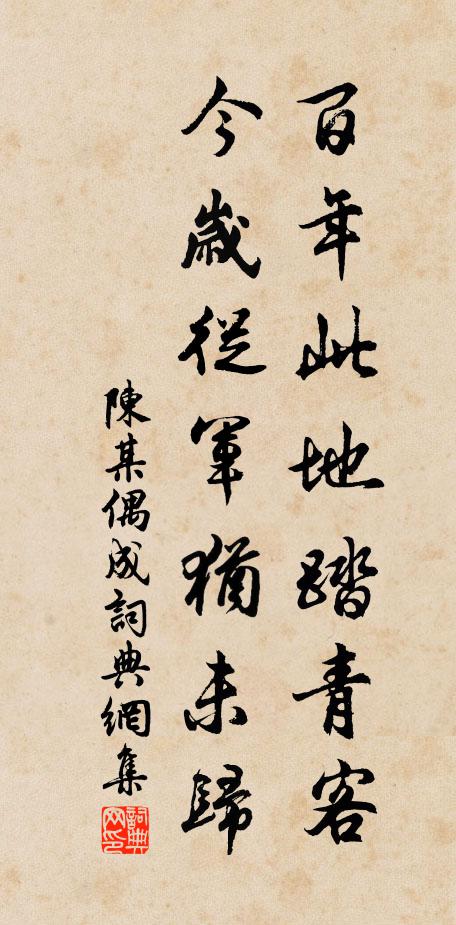 百年此地踏青客
今歲從軍猶未歸
陳某偶成詞典網集
詞典网印